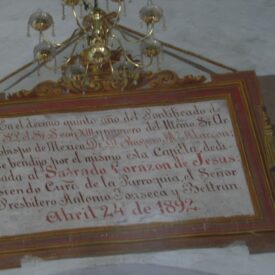 En el decimo quinto año del Pontificado de
S.S. el Sr. Leon XIII y primero del Illmo. Sr. Ar
zobispo de Mexico Dr. D. Prospero Mª Alarcon;
se bendijo por el mismo esta Capilla dedi
cada al Sagrado Corazon de Jesus:
siendo Cura de la Parroquia, el Señor
Presbitero Antonio Fonseca y Beltran.
Abril 24 de 1892.